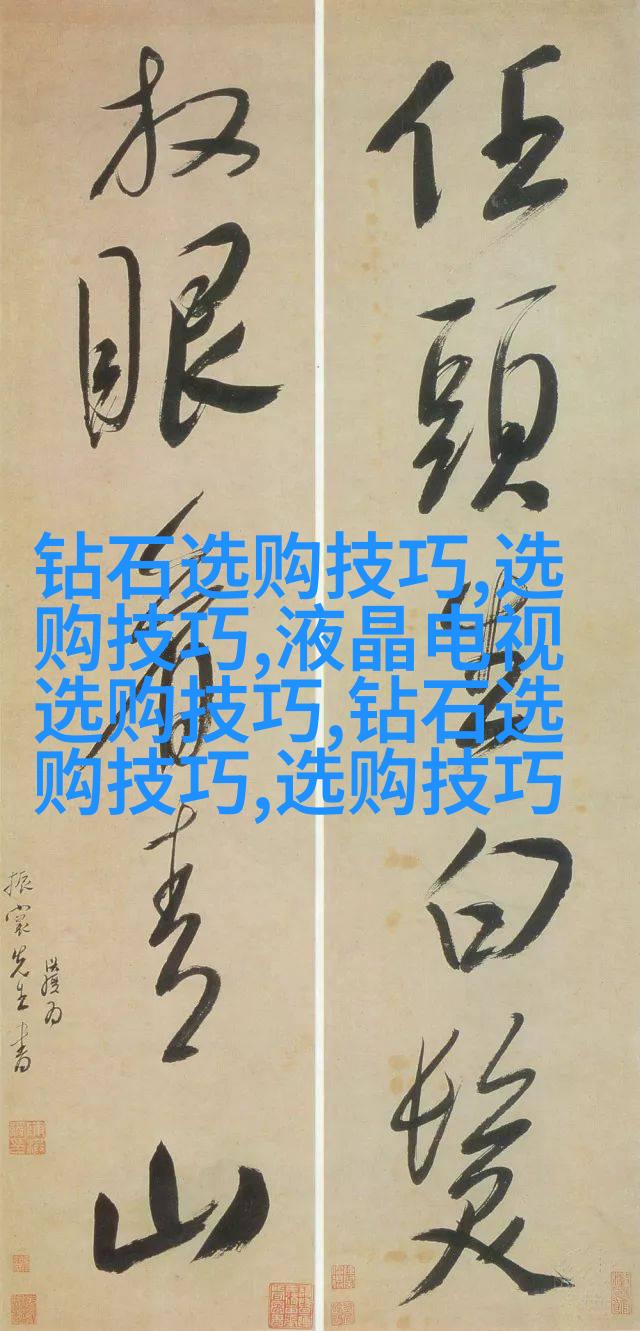 任頭生白髮
放眼看青山
振裳先生書
钻石选购技巧,选
购技巧,液晶电视
选购技巧,钻石选
购技巧,选购技巧